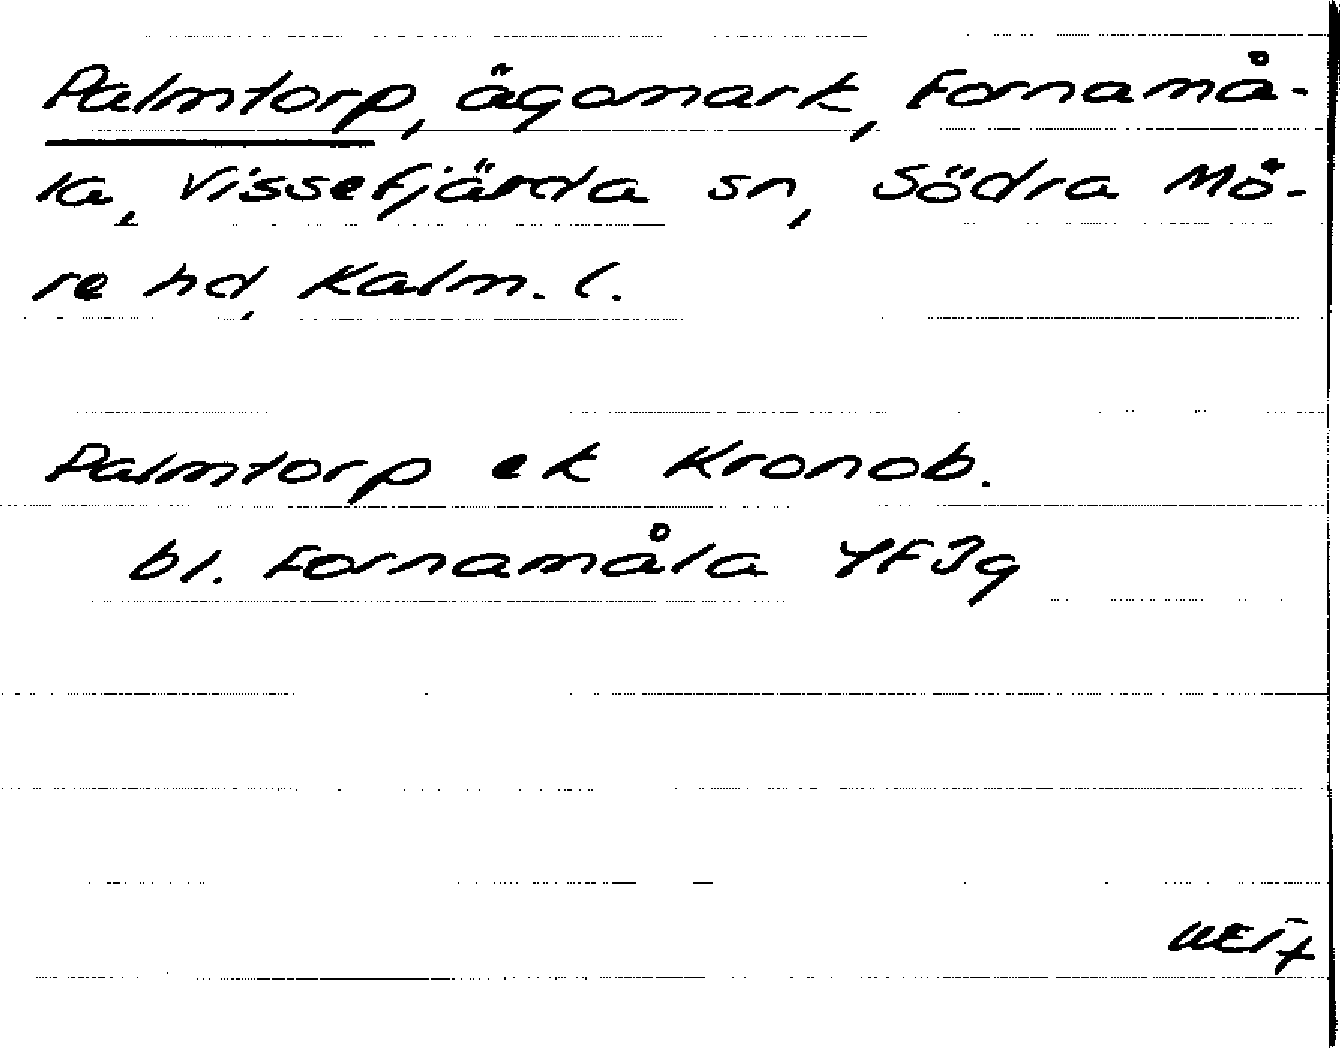 Palmtorp, ägomark, Fornamå-
la, Vissefjärda sn, Södra Mö-
re hd, Kalm. l.
Palmtorp ek Kronob.
bl. Fornamåla